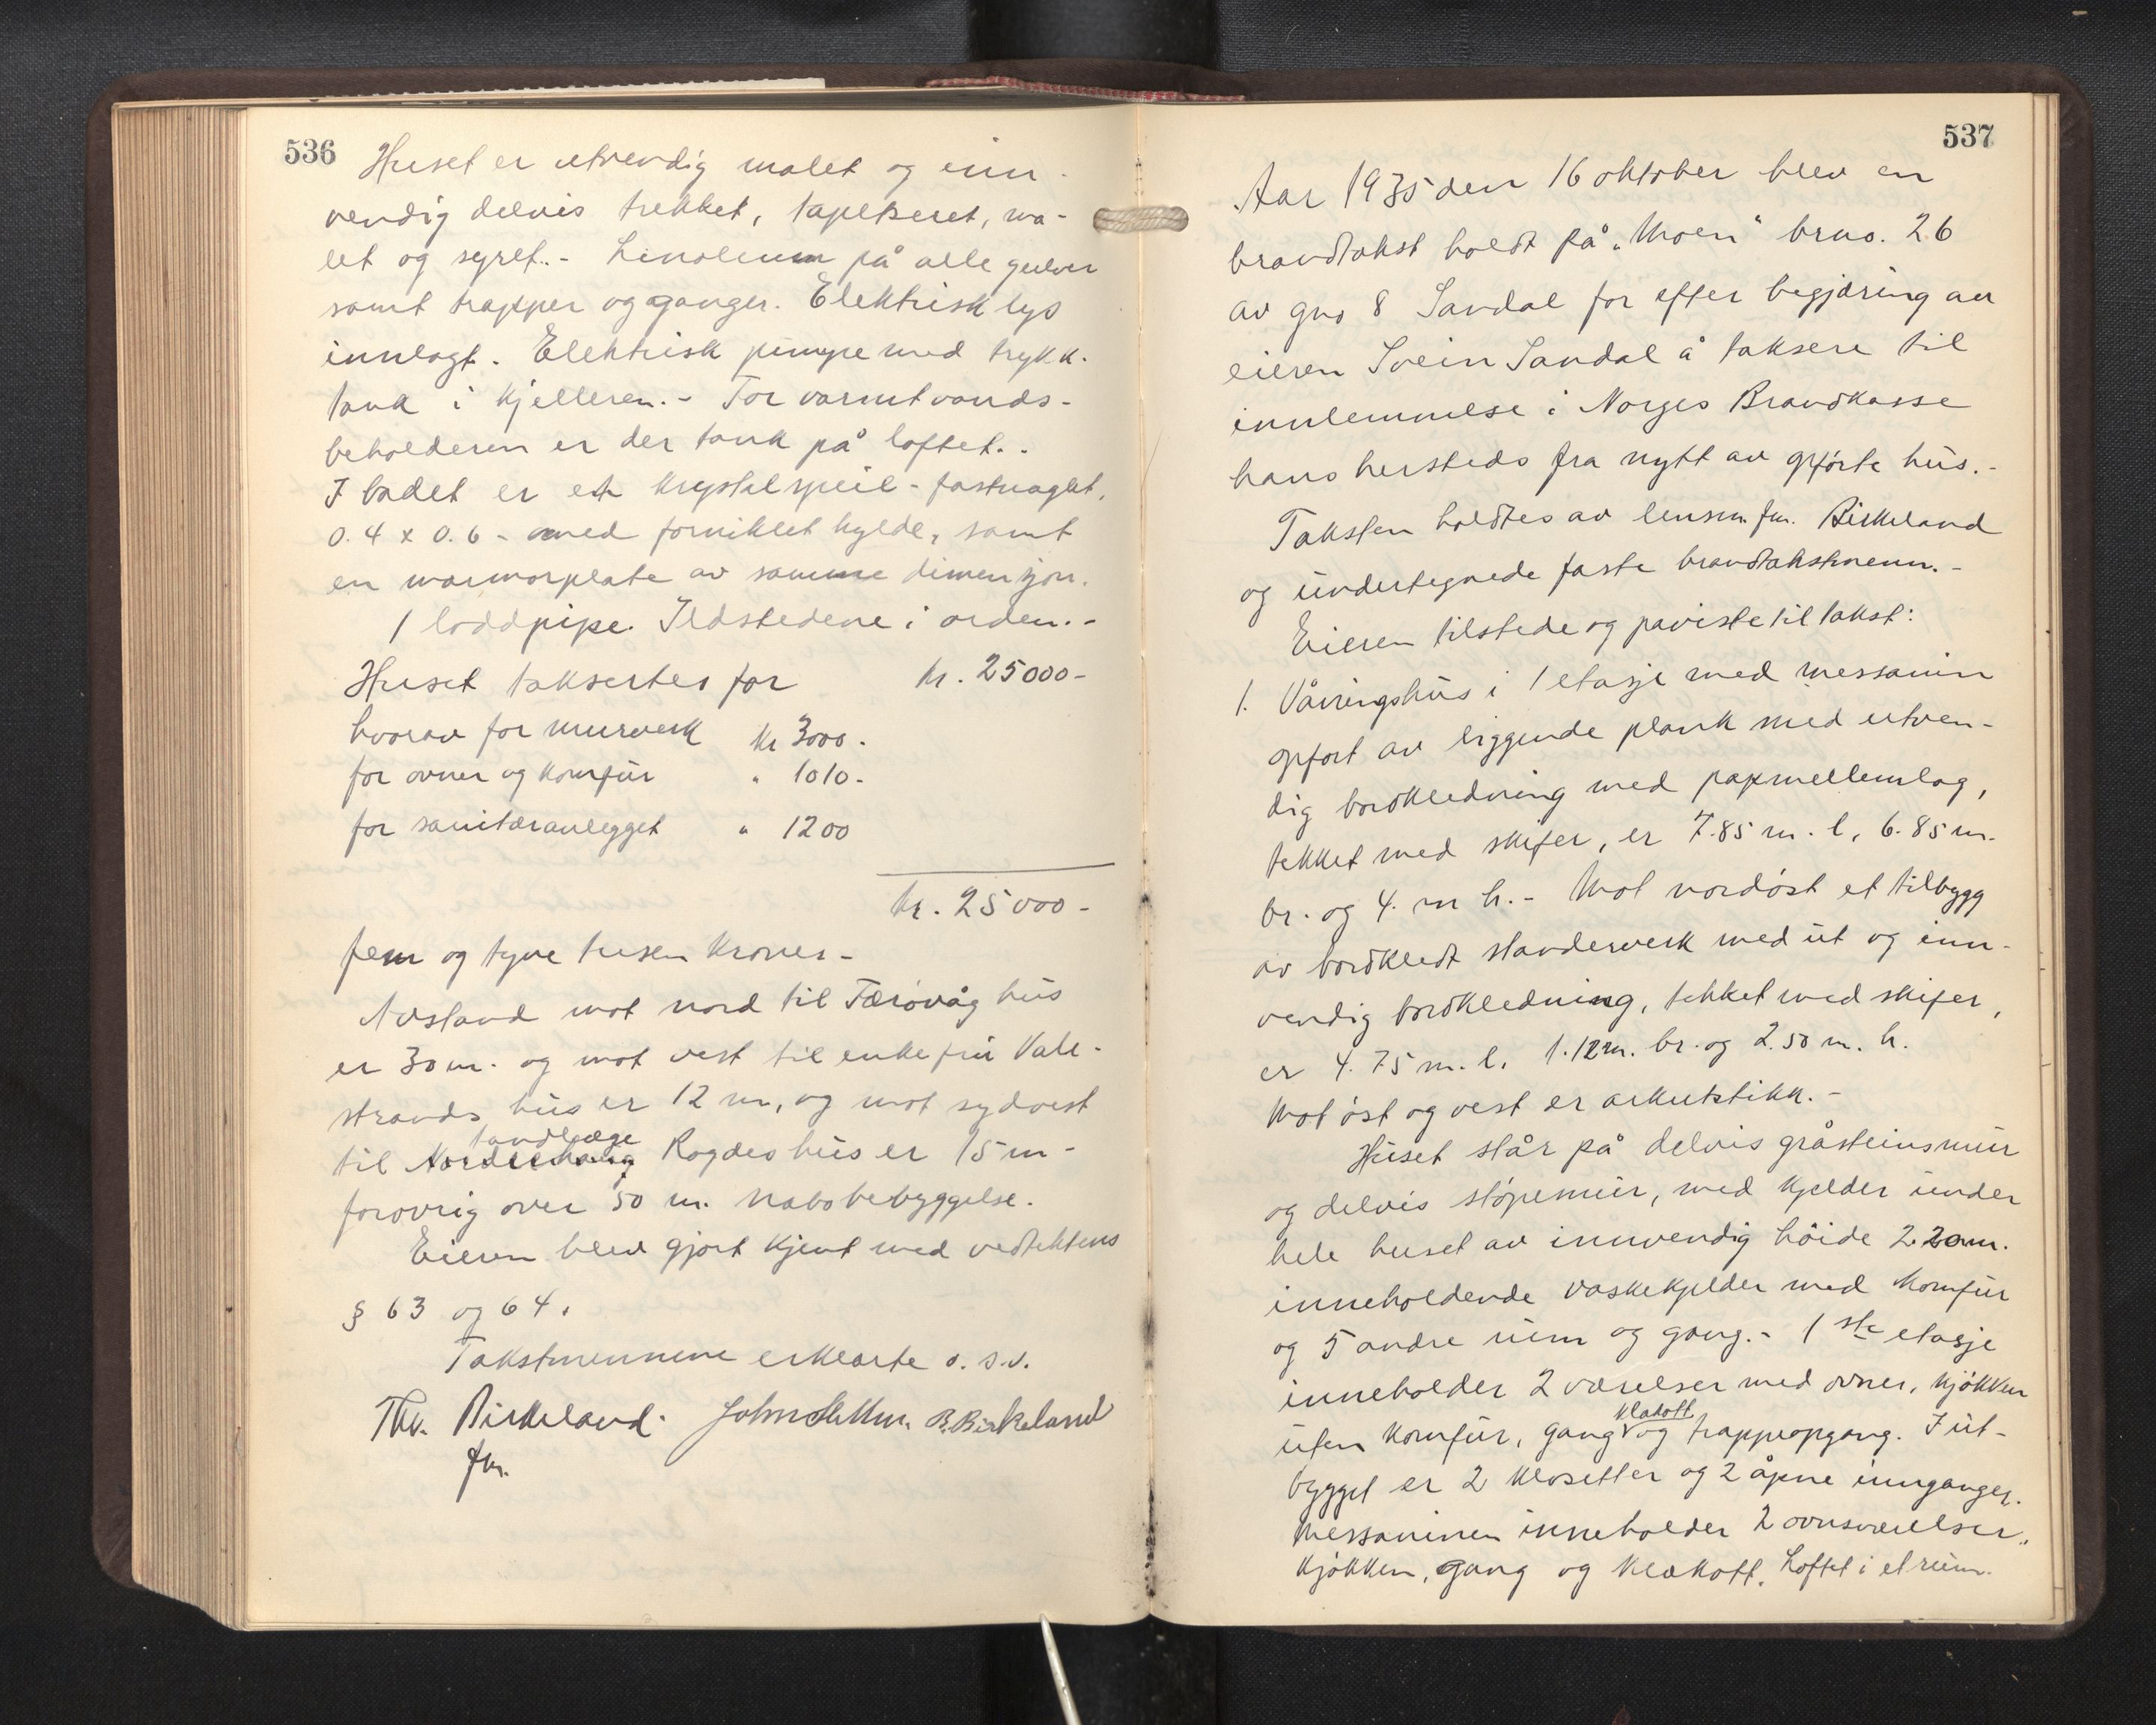 536
Huset er utvendig malet og inn-
vendig delvis trekket, tapetseret, ma-
let og syret. - Linoleum på alle gulver
samt trapper og ganger. Elektrisk lys
innlagt. Elektrisk pumpe med trykk-
tank i kjelleren. - For varmtvands-
beholderen er der tank på loftet. -
I badet er et krystalspeil - fastnaglet,
0.4 x 0.6 - med forniklet hylde, samt
en marmorplate av samme dimensjon.
1 loddpipe. Ildstedene i orden. -
Huset takseres for kr. 25000 -
hvorav for murverk kr 3000 -
for ovner og komfur " 1010 -
for sanitæranlegget " 1200
kr. 25000 -
fem og tyve tusen kroner -
Avstand mot nord til Færøvåg hus
er 30 m. og mot vest til enkefru Vale-
strands hus er 12 m, og mot sydvest
tandlæge
til Rogdes hus er 15 m -
forøvrig over 50 m. nabobebyggelse.
Eieren blev gjort kjent med vedtektens
§ 63 og 64.
Takstmennene erklærte o. s. v.
Thv. Birkeland. B. Birkeland
fm.
537
Aar 1935 den 16 oktober blev en
brandtakst holdt på "Moen" brno. 26
av gno 8 Sandal for efter begjæring av
eieren Svein Sandal å taksere til
innlemmelse i Norges Brandkasse
hans hersteds fra nytt av opførte hus. -
Taksten holdtes av lensm. fm. Birkeland
og undertegnede faste brandtakstmenn. -
Eieren tilstede og påviste til takst:
1. Våningshus i 1 etasje med messanin
opført av liggende plank med utven-
dig bordkledning med papmellemlag,
tekket med skifer, er 7.85 m. l. 6.85 m.
br. og 4. m h. - Mot nordøst et tilbygg
av bordkledt standerverk med ut og inn-
vendig bordkledning, tekket med skifer,
er 4.75 m. l. 1.12 m. br. og 2.50 m. h.
Mot øst og vest er arkutstikk. -
Huset står på delvis gråsteinsmur
og delvis støpemur, med kjelder under
hele huset av innvendig høide 2.20 m.
inneholdende vaskekjelder med komfur
og 5 andre rum og gang. - 1ste etasje
inneholder 2 værelser med ovner, kjøkken
klækott
uten komfur, gang og trappeopgang. I ut-
bygget er 2 klosetter og 2 åpne innganger.
Messaninen inneholder 2 ovnsværelser,
kjøkken, gang og klækott. Loftet i et rum.